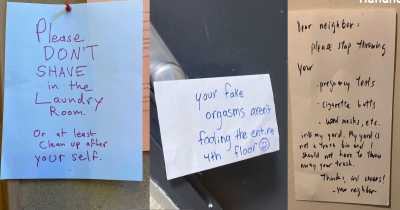 Please
DON'T
SHAVE
in the
Laundry
Room.
Or at least
clean up after
your self.
your fake
orgasms aren't
fooling the entire
4th floor ☺
Dear neighbor:
please stop throwing
your
- pregnancy tests
- cigarette butts
- used masks, etc.
into my yard. My yard is
not a trash bin and I
should not have to throw
away your trash.
Thanks, and cheers!
- your neighbor